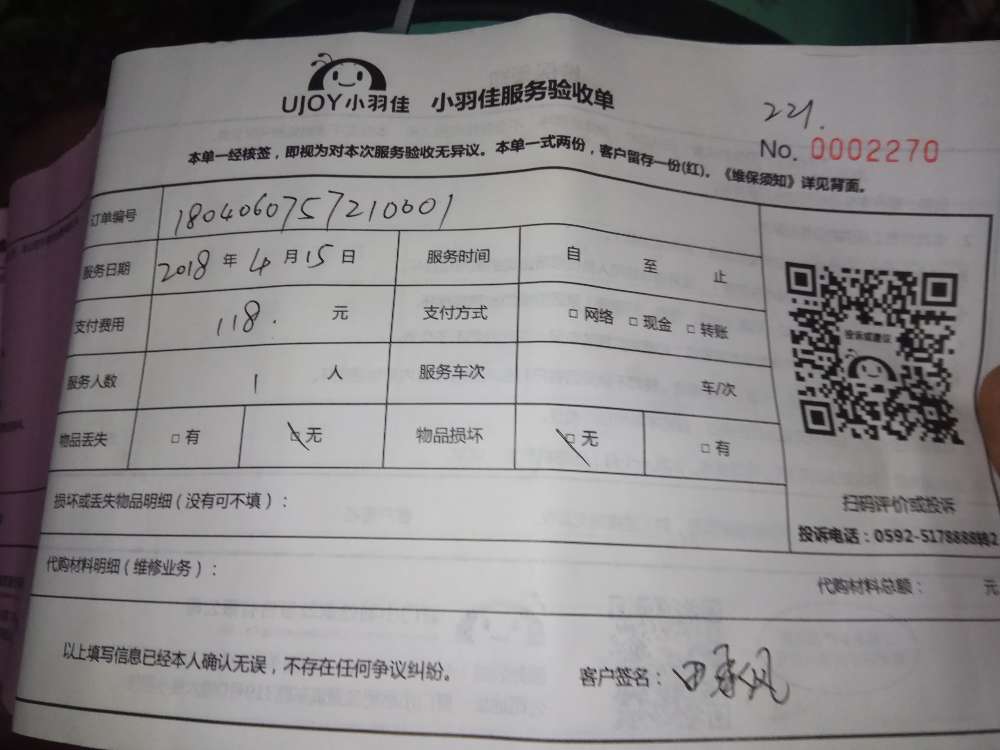 UJOY小羽佳 小羽佳服务验收单
221.
No. 0002270
本单一经核签，即视为对本次服务验收无异议。本单一式两份，客户留存一份(红)。《维保须知》详见背面。
订单编号 180406075721000​1
服务日期 2018 年 4 月 15 日 服务时间 自 至 止
支付费用 118. 元 支付方式 □ 网络 □ 现金 □ 转账
服务人数 1 人 服务车次 车/次
物品丢失 □ 有 □ 无 物品损坏 □ 无 □ 有
投诉或建议
扫码评价或投诉
投诉电话：0592-5178888转2
损坏或丢失物品明细（没有可不填）：
代购材料明细（维修业务）： 代购材料总额： 元
以上填写信息已经本人确认无误，不存在任何争议纠纷。 客户签名：